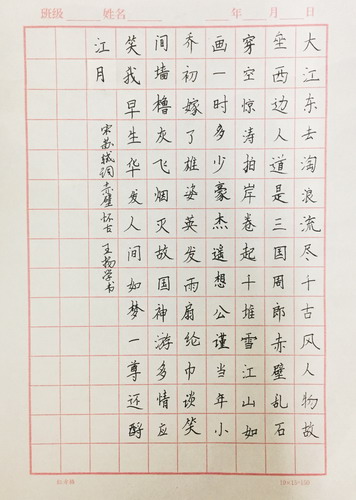 班级 姓名 年 月 日
大江东去淘浪流尽千古风人物故
垒西边人道是三国周郎赤壁乱石
穿空惊涛拍岸卷起千堆雪江山如
画一时多少豪杰遥想公谨当年小
乔初嫁了雄姿英发雨扇纶巾谈笑
间墙橹灰飞烟灭故国神游多情应
笑我早生华发人间如梦一尊还酹
江月
宋苏轼词赤壁怀古 王杨学书
18×15=150